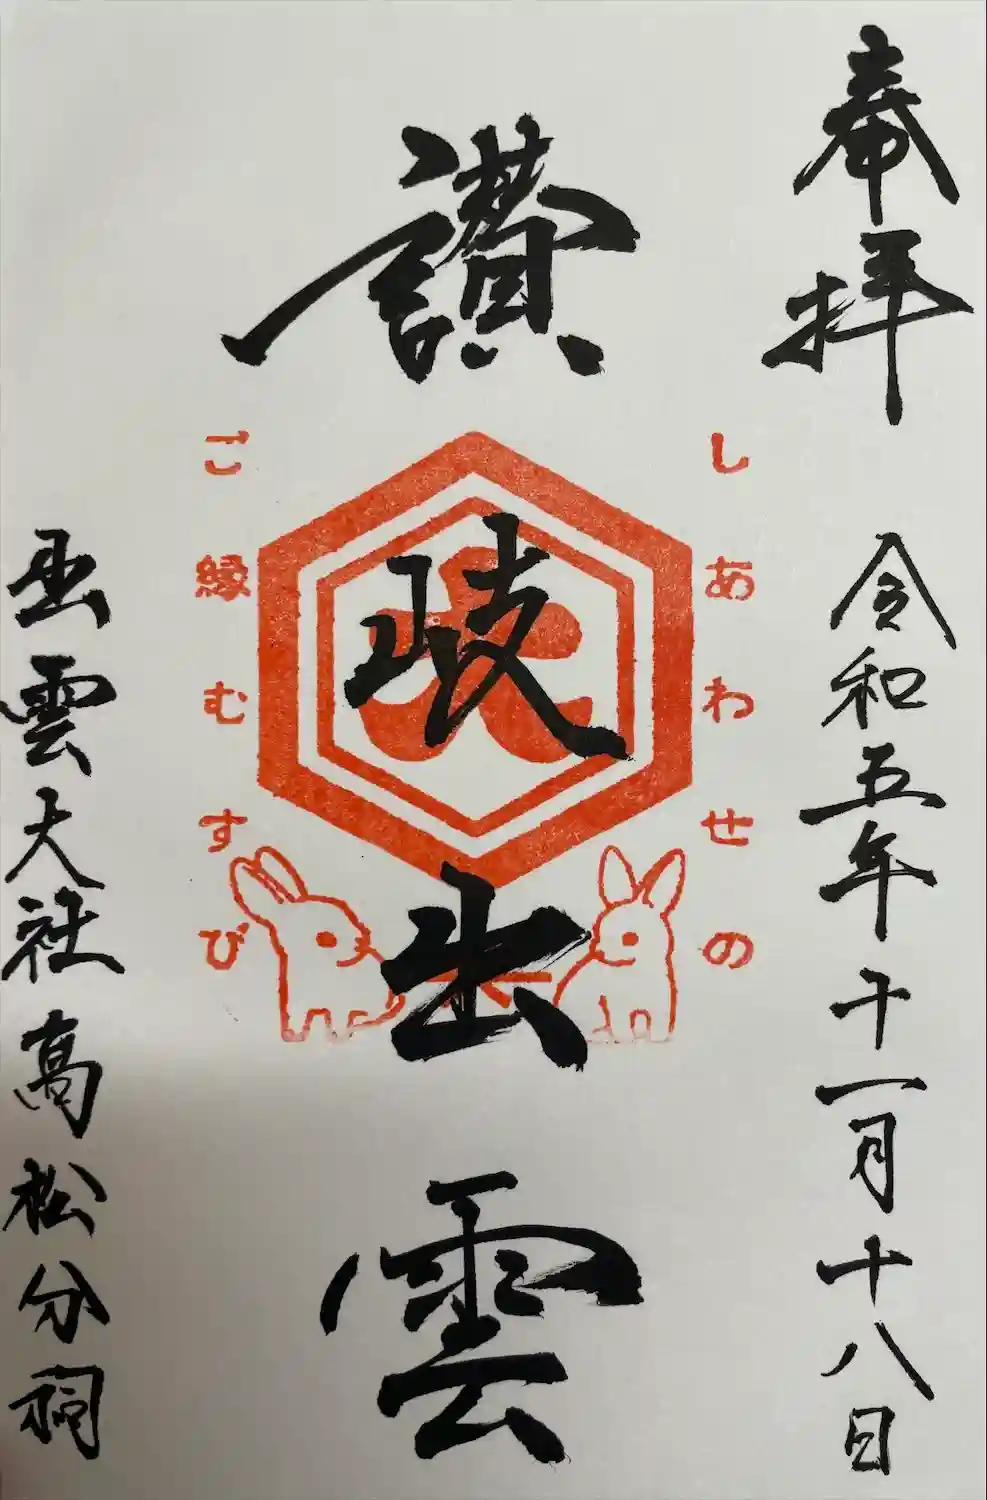 奉拝
令和五年十一月十八日
しあわせの
讃岐出雲
ご縁むすび
出雲大社高松分祠